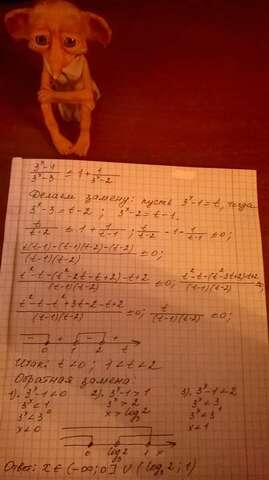 (3^x-1)/(3^x-3) ≤ 1 + 1/(3^x-2)
Делаем замену: пусть 3^x-1=t, тогда
3^x-3=t-2; 3^x-2=t-1.
t/(t-2) ≤ 1 + 1/(t-1); t/(t-2) - 1 - 1/(t-1) ≤ 0;
(t(t-1)-(t-1)(t-2)-(t-2))/((t-1)(t-2)) ≤ 0;
(t²-t-(t²-2t-t+2)-t+2)/((t-1)(t-2)) ≤ 0; (t²-t-(t²-3t+2)-t+2)/((t-1)(t-2))
(t²-t-t²+3t-2-t+2)/((t-1)(t-2)) ≤ 0; t/((t-1)(t-2)) ≤ 0;
- + - +
0 1 2 t
Итак: t≤0; 1<t<2
Обратная замена:
1) 3^x-1≤0 2) 3^x-1>1 3) 3^x-1<2
3^x≤1 3^x>2 3^x<3
3^x≤3^0 x>log_3 2 3^x<3^1
x≤0 x<1
0 log_3 2 1 x
Ответ: x∈(-∞;0]∪(log_3 2;1)